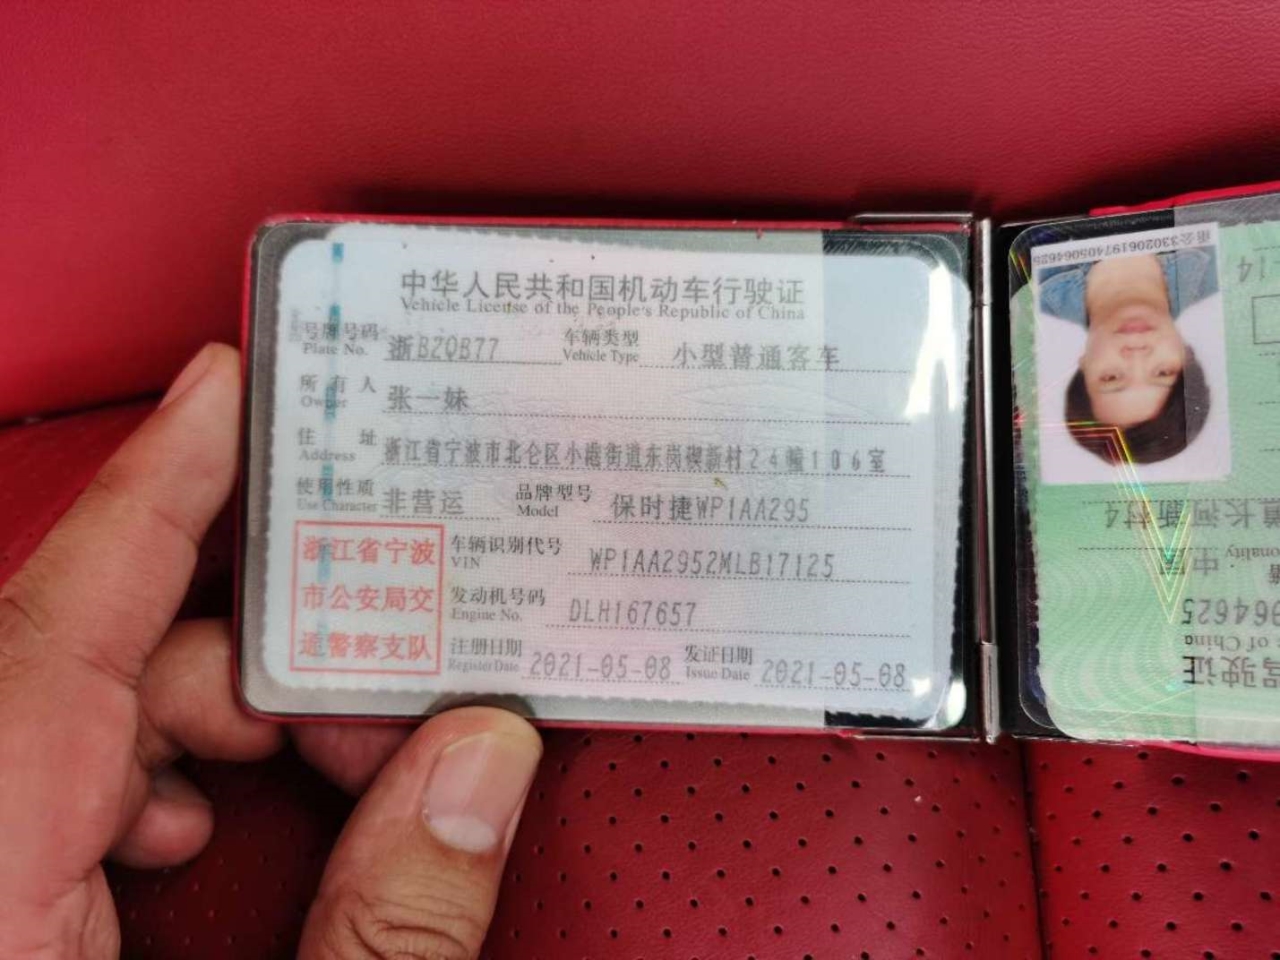 中华人民共和国机动车行驶证
Vehicle License of the People's Republic of China
号牌号码 浙BZQB77 车辆类型 小型普通客车
Plate No. Vehicle Type
所有人 张一妹
Owner
住址 浙江省宁波市北仑区小港街道东岗碶新村24幢106室
Address
使用性质 非营运 品牌型号 保时捷WP1AA295
Use Character Model
浙江省宁波
市公安局交
通警察支队
车辆识别代号 WP1AA2952MLB17125
VIN
发动机号码 DLH167657
Engine No.
注册日期 2021-05-08 发证日期 2021-05-08
Register Date Issue Date
驾驶证
of China
064625
中国
onality
镇长河新村4
14
330206197405064625